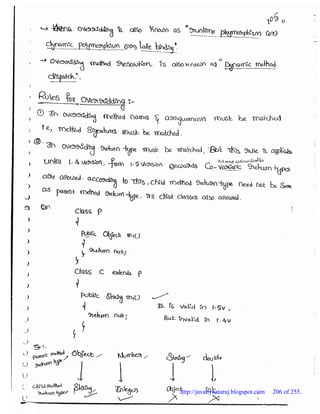 → Overriding is also known as "Runtime polymorphism (or)
dynamic polymorphism (or) late binding".
→ Overriding method resolution, is also known as "Dynamic method
dispatch".
Rules for Overriding :-
① In overriding method names & arguments must be matched
i.e, method signatures must be matched.
② In overriding return type must be matched, But This rule is applicable
until 1.4 version, from 1.5 version onwards Co-variant return types
are allowed. according to this, child method return-type need not be Same
as parent method return-type. its child classes also allowed.
Ex:
Class P
{
Public Object m1()
{
return null;
}
}
Class C extends P
{
Public String m1() ✓
{
return null;
}
}
It is valid in 1.5v,
But Invalid in 1.4v
Parent method
return type
Object ✓ Number ✓ String ✓ double
child method
return type
String Integer Object int
http://javabynataraj.blogspot.com 206 of 255.